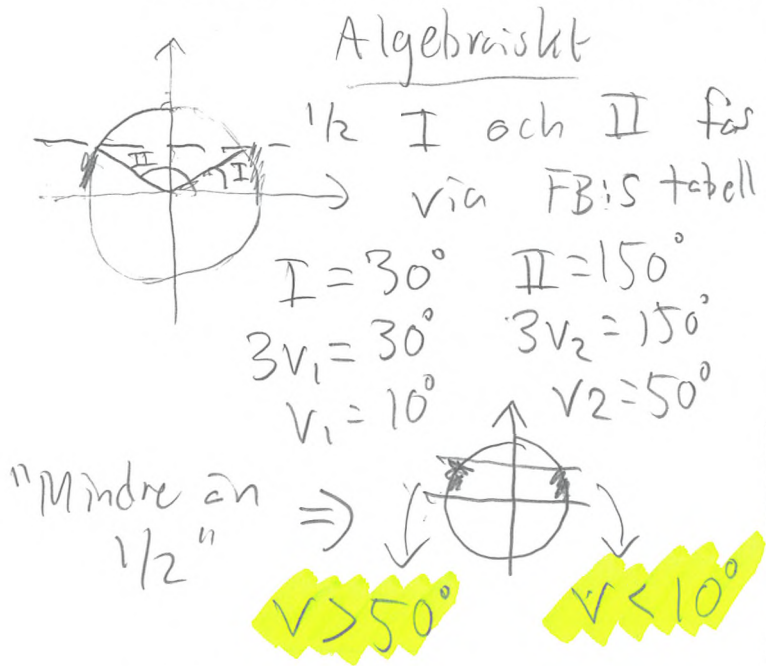 Algebraiskt
1/2 I och II fås
via FB:s tabell
II I
I = 30° II = 150°
3v₁ = 30° 3v₂ = 150°
v₁ = 10° v2 = 50°
"Mindre än
1/2" ⇒
v > 50° v < 10°